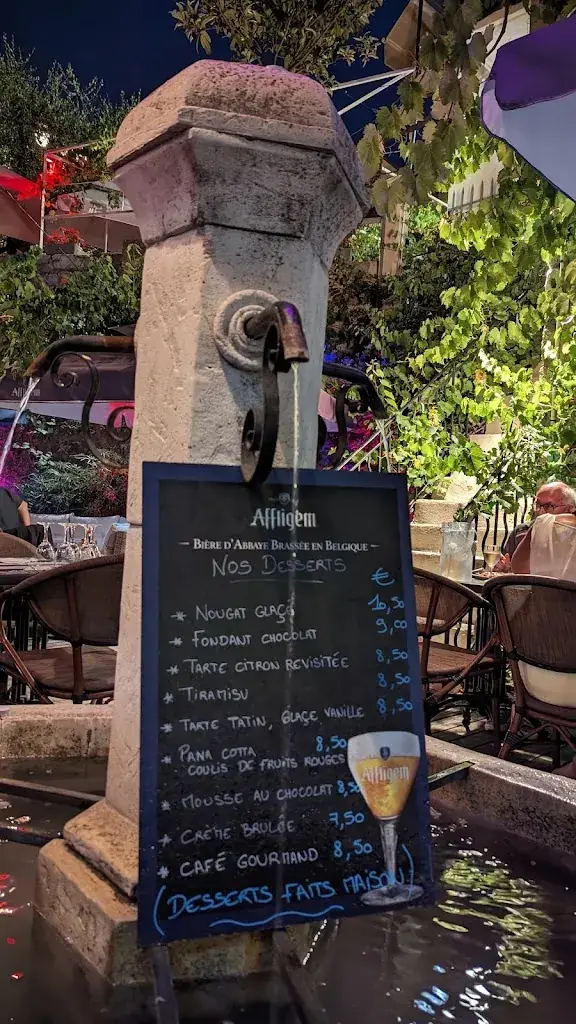 Affligem
Affligem
BIÈRE D'ABBAYE BRASSÉE EN BELGIQUE
NOS DESSERTS
€
* NOUGAT GLAÇÉ 10,50
* FONDANT CHOCOLAT 9,00
* TARTE CITRON REVISITÉE 8,50
* TIRAMISU 8,50
* TARTE TATIN, GLAÇE VANILLE 8,50
* PANA COTTA 8,50
COULIS DE FRUITS ROUGES
* MOUSSE AU CHOCOLAT 8,50
* CRÈME BRULÉE 7,50
* CAFÉ GOURMAND 8,50
(DESSERTS FAITS MAISON)
Affligem